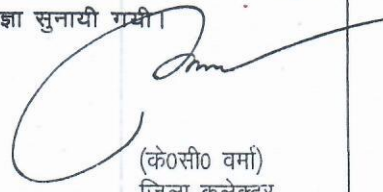 ज्ञा सुनायी गयी।
(के०सी० वर्मा)
जिला कलेक्टर